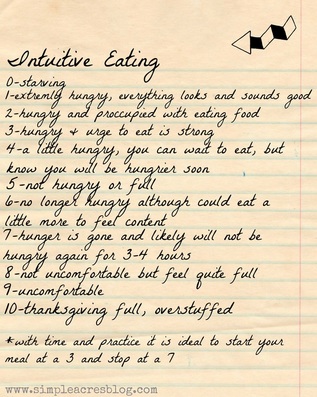 Intuitive Eating
0-starving
1-extremly hungry, everything looks and sounds good
2-hungry and proccupied with eating food
3-hungry & urge to eat is strong
4-a little hungry, you can wait to eat, but
know you will be hungrier soon
5-not hungry or full
6-no longer hungry although could eat a
little more to feel content
7-hunger is gone and likely will not be
hungry again for 3-4 hours
8-not uncomfortable but feel quite full
9-uncomfortable
10-thanksgiving full, overstuffed
*with time and practice it is ideal to start your
meal at a 3 and stop at a 7
www.simpleacresblog.com